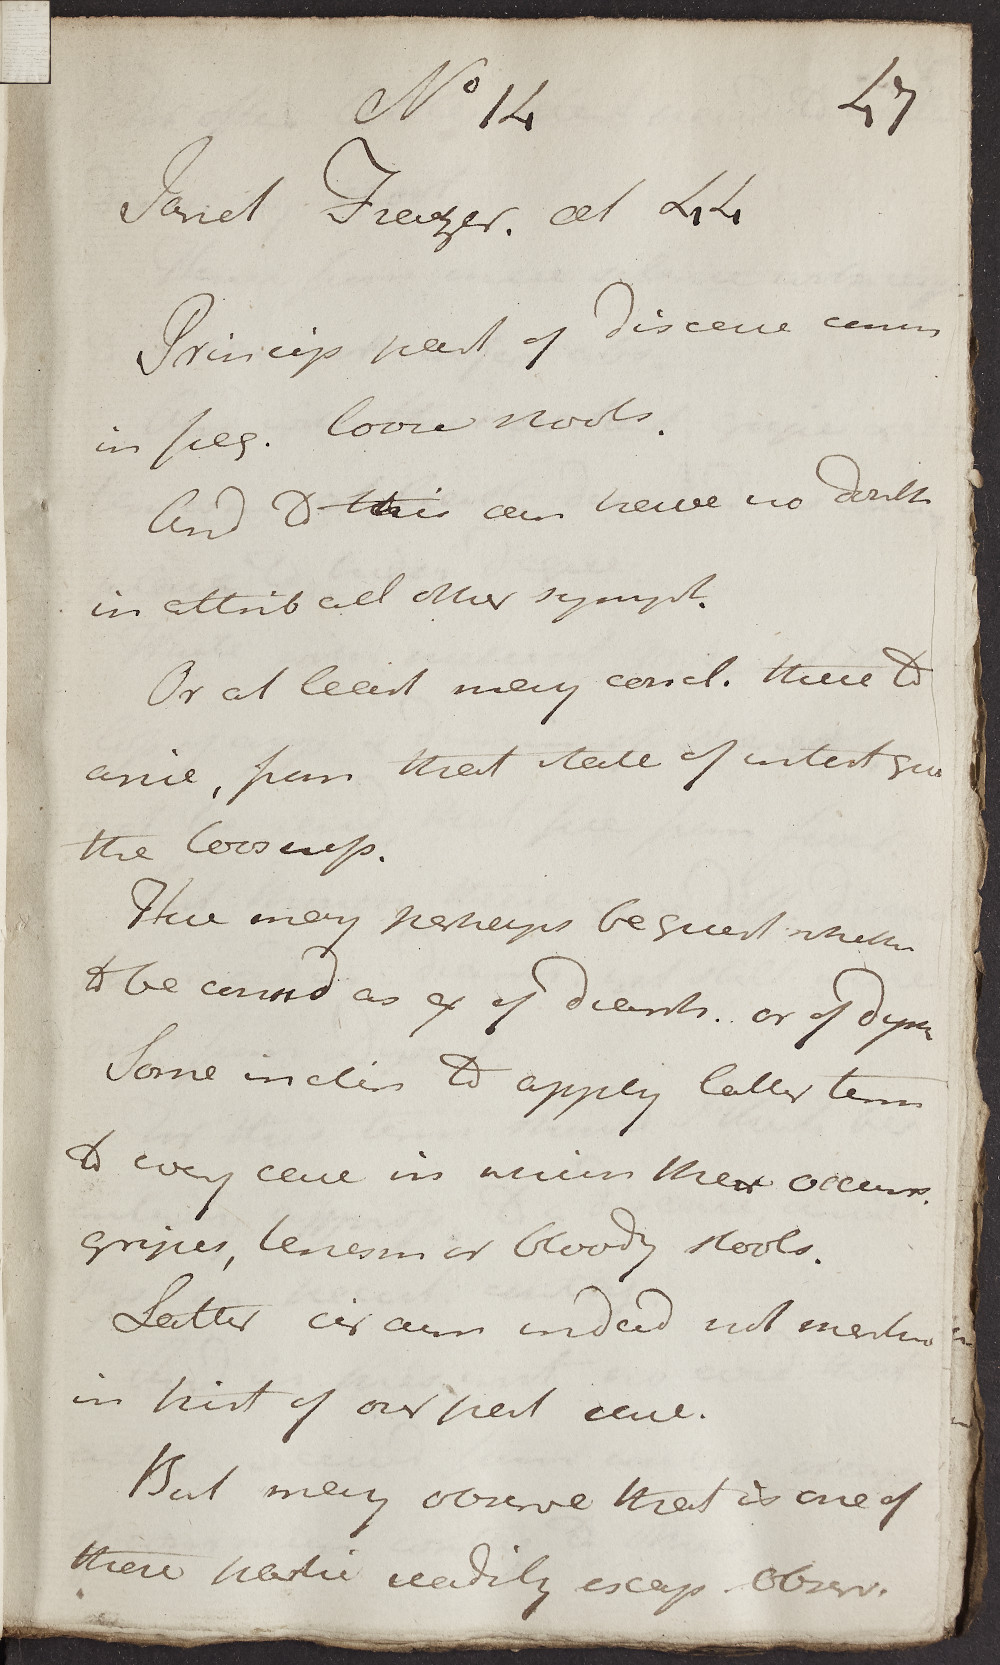 No 14 47
Janet Frazer. aet 44
Princip part of disease cons
in freq. loose stools.
And to this can have no doubt
in attrib all other sympt.
Or at least may concl. these to
arise, from that state of intest give
the loosness.
Here may perhaps be quest whether
to be consid as ex of diarrh. or of dysen
Some inclin to apply latter term
to every case in which there occurs.
gripes, tenesm or bloody stools.
Latter circum indeed not mention
in hist of our pat case.
But may observe that is one of
these partic readily escap observ.